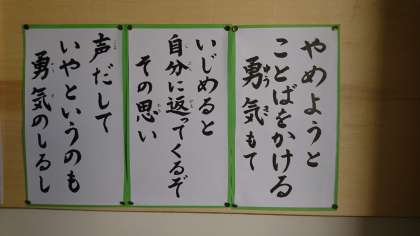 やめようと
ことばをかける
勇気もて
いじめると
自分に返ってくるぞ
その思い
声だして
いやというのも
勇気のしるし